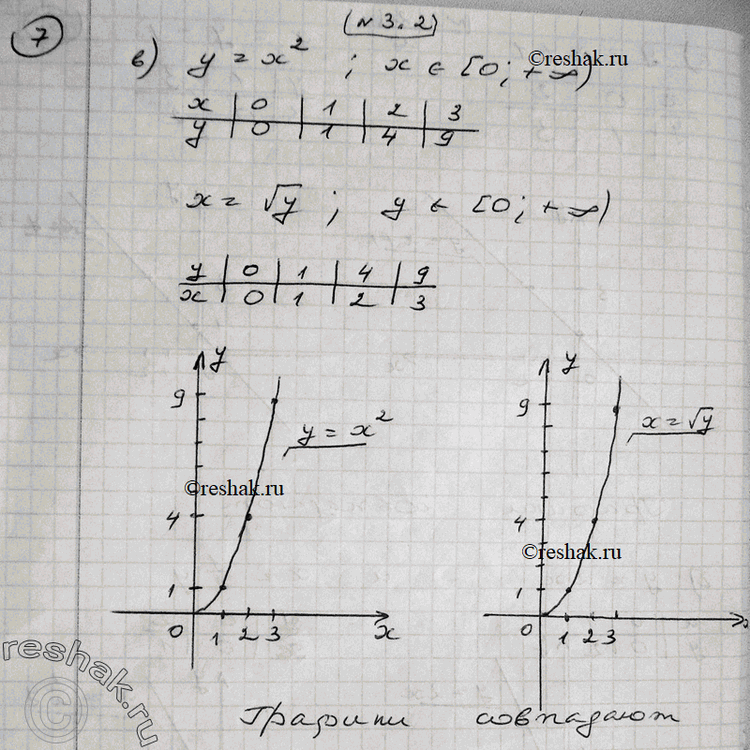 7
(№ 3.2)
в) y = x² ; x ∈ [0; +∞)
©reshak.ru
x | 0 | 1 | 2 | 3
y | 0 | 1 | 4 | 9
x = √y ; y ∈ [0; +∞)
y | 0 | 1 | 4 | 9
x | 0 | 1 | 2 | 3
y
9
y = x²
©reshak.ru
4
1
0 1 2 3 x
y
9
x = √y
4
©reshak.ru
1
0 1 2 3
reshak.ru
©
Графики совпадают